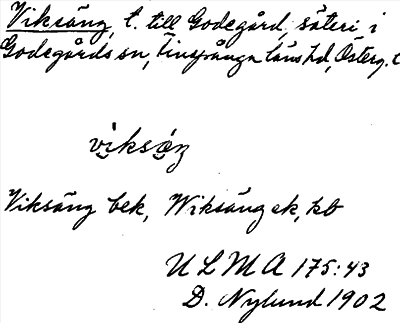 Viksäng, t. till Godegård, säteri i
Godegårds sn, Finspånga läns hd, Österg. l
viksäng
Viksäng bek, Wiksäng ek, kb
ULMA 175:43
D. Nylund 1902